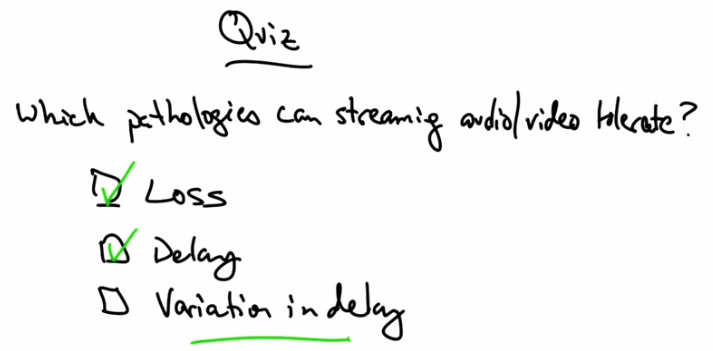 Quiz
Which pathologies can streaming audio/video tolerate?
Loss
Delay
Variation in delay